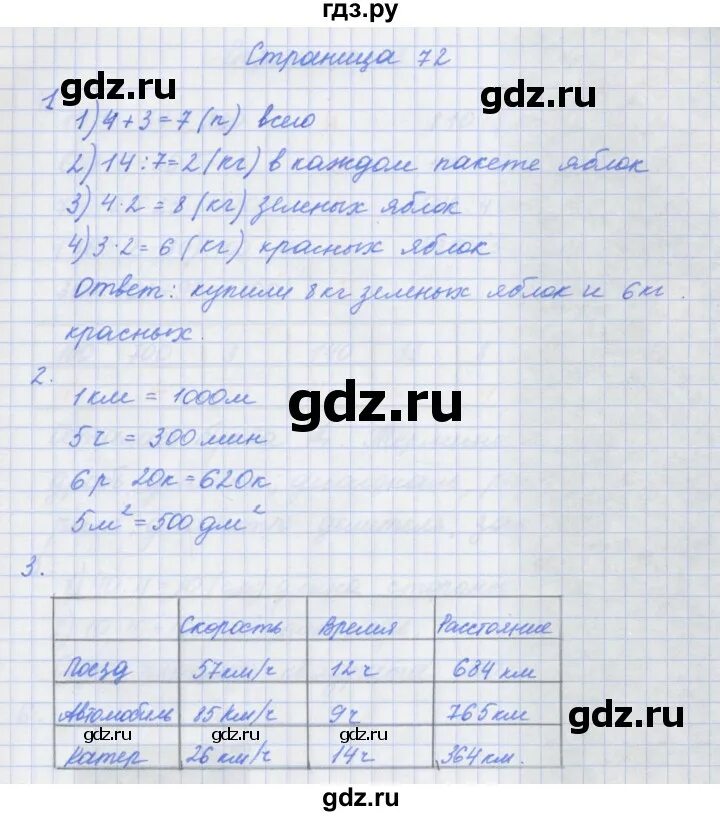 гдз.ру
Страница 72
gdz.ru
gdz.ru
1
1) 4+3=7 (п) всего
2) 14:7=2 (кг) в каждом пакете яблок
3) 4·2=8 (кг) зеленых яблок
4) 3·2=6 (кг) красных яблок
Ответ: купили 8кг зеленых яблок и 6кг
красных.
2.
1км = 1000м
gdz.ru
5ч = 300мин
6р 20к = 620к
5м² = 500дм²
3.
Скорость Время Расстояние
Поезд 57км/ч 12ч 684км
Автомобиль 85км/ч 9ч 765км
gdz.ru gdz.ru gdz.ru
Катер 26км/ч 14ч 364км.
gdz.ru